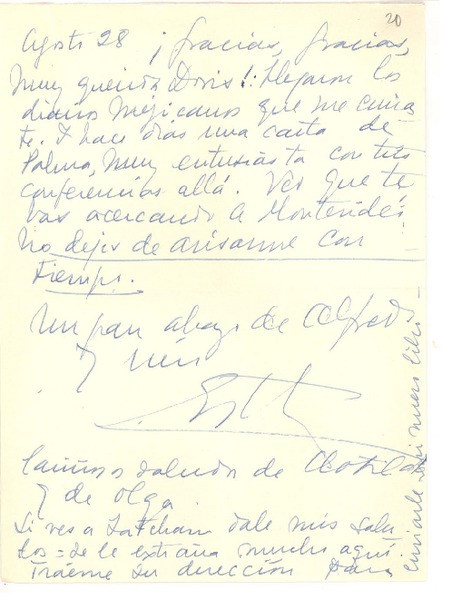 20
Agosto 28 ¡Gracias, gracias,
muy querida Doris!: Llegaron los
diarios mejicanos que me envias
te. Y hace dias una carta de
Palma, muy entusiasta con tus
conferencias allá. Veo que te
vas acercando a Montevideo!
No dejes de avisarme con
tiempo.
Un gran abrazo de Alfredo
y mio
Cariñosos saludos de Clotilde
y de Olga.
Si ves a Latcham dale mis salu-
dos = se le extraña mucho aquí.
Tráeme su dirección para
enviarle mi nuevo libro